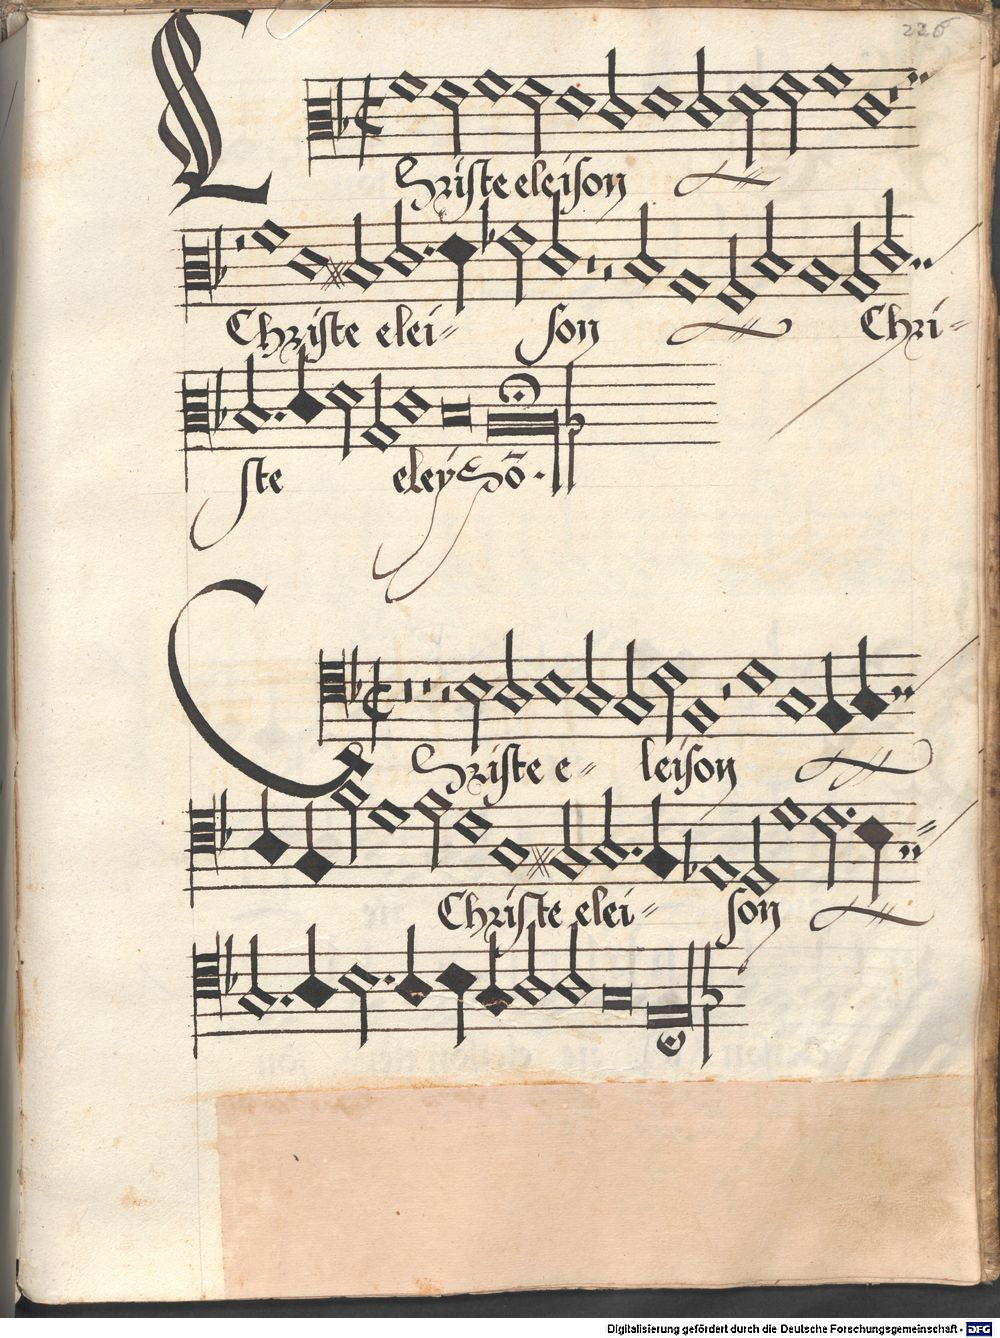 226
Christe eleison
Christe elei= son Chri=
ste eleÿsō.
Christe e= leison
Christe elei= son
Digitalisierung gefördert durch die Deutsche Forschungsgemeinschaft - DFG